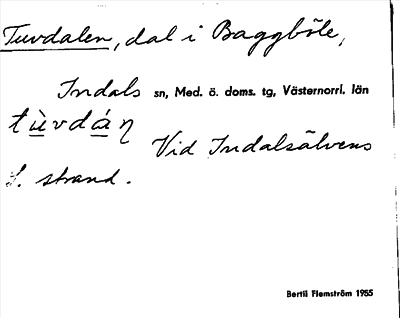 Tuvdalen, dal i Baggböle,
Indals sn, Med. ö. doms. tg, Västernorrl. län
tùvdáη
Vid Indalsälvens
S. strand.
Bertil Flemström 1955